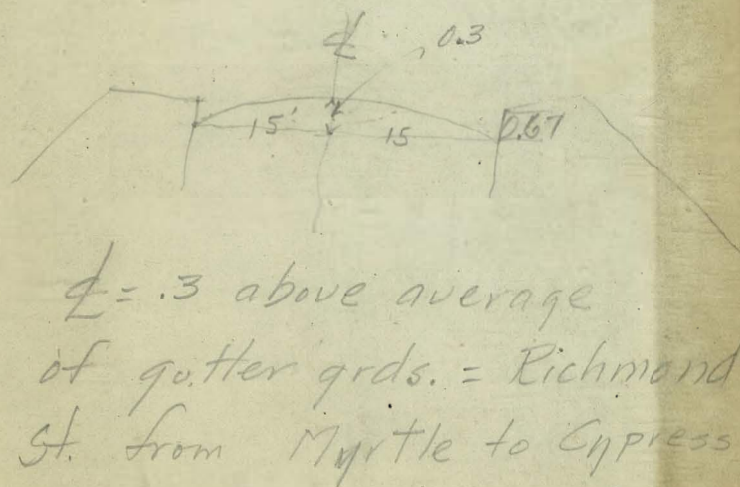 ℄ 0.3
15' 15 0.67
℄ = .3 above average
of gutter grds. = Richmond
St. from Myrtle to Cypress